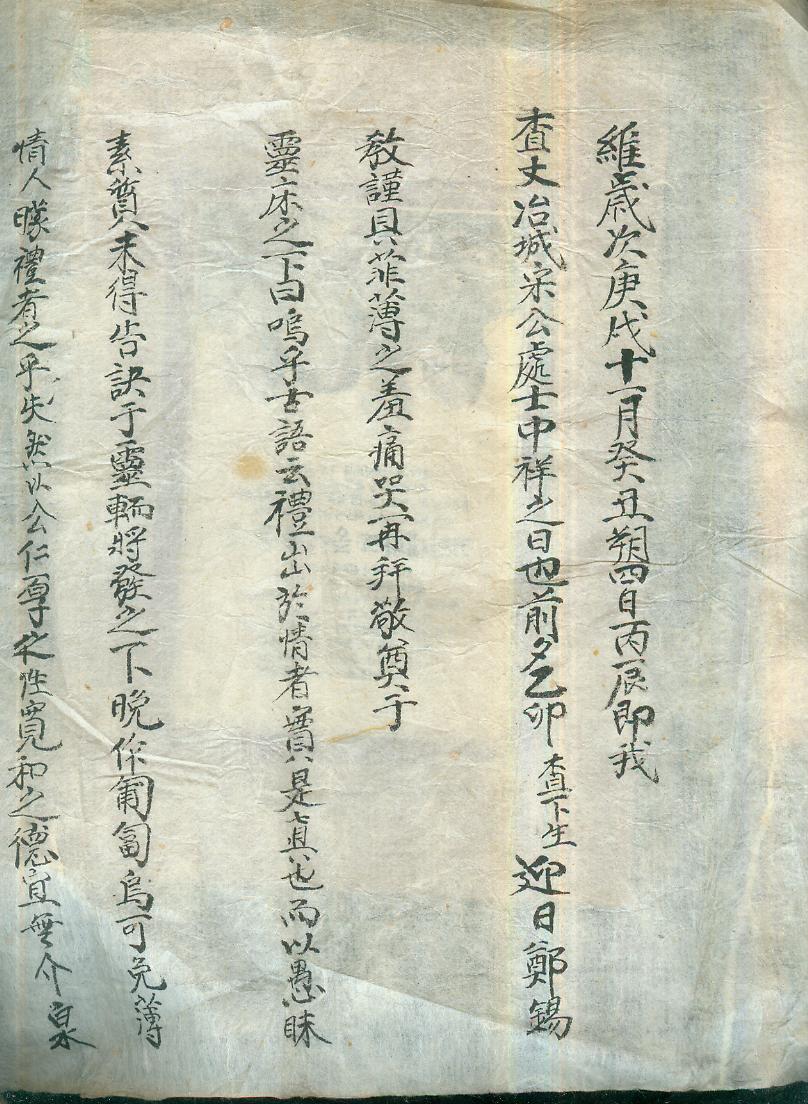 維歲次庚戌十一月癸丑朔四日丙辰卽我
査丈冶城宋公處士中祥之日也前夕乙卯査下生迎日鄭錫
敎謹具菲薄之羞痛哭再拜敬奠于
靈床之下曰嗚乎古語云禮出於情者實是眞也而以愚昧
素質人未得告訣于靈輀將發之下晩作匍匐烏可免薄
情人矇禮者之乎失然以公仁厚之性寬和之德宜無介